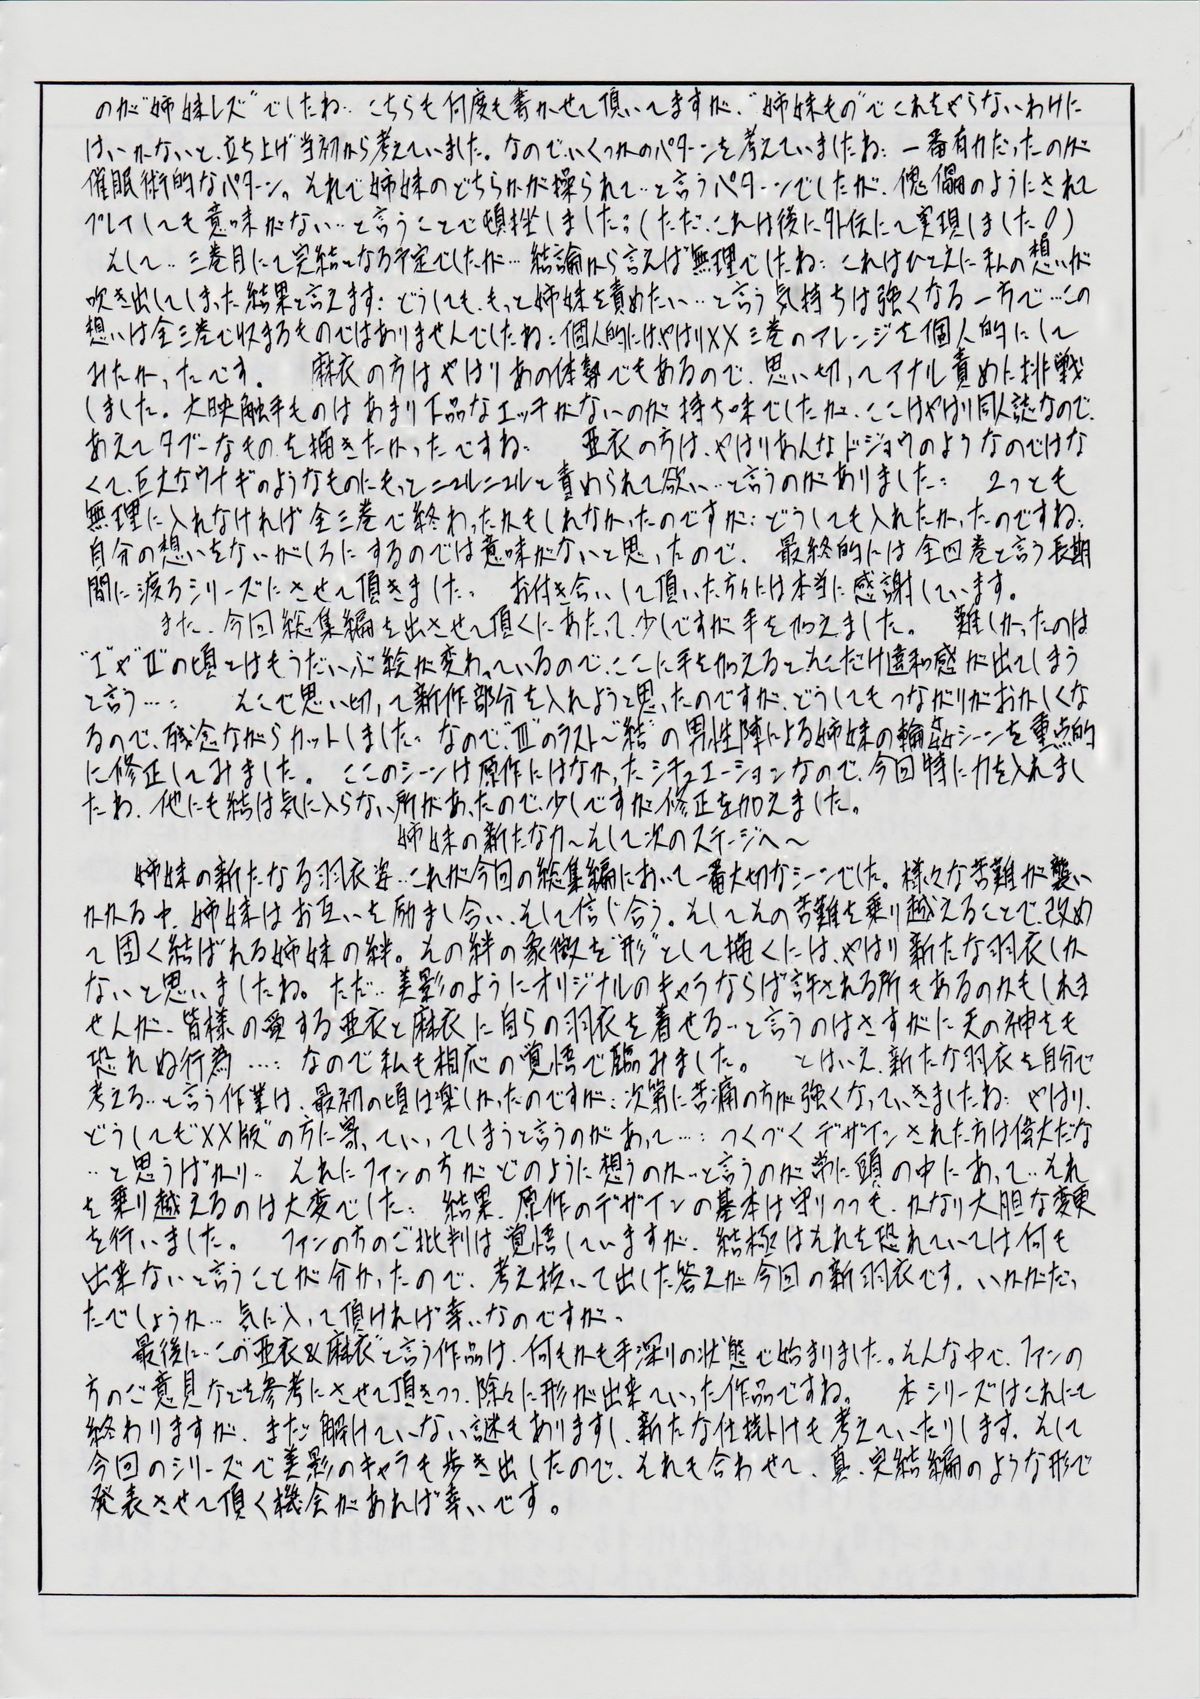 のが“姉妹レズ”でしたね‥こちらも何度も書かせて頂いてますが、“姉妹もの”でこれをやらないわけに
はいかないと、立ち上げ当初から考えていました。なので、いくつかのパターンを考えていましたね‥一番有力だったのが
催眠術的なパターン。それで姉妹のどちらかが操られて‥と言うパターンでしたが、傀儡のようにされて
プレイしても意味がない‥と言うことで頓挫しました‥(ただ、これは後に外伝にて実現しました)
そして‥三巻目にて完結となる予定でしたが‥結論から言えば無理でしたね‥これはひとえに私の想いが
吹き出してしまった結果と言えます‥どうしても、もっと姉妹を責めたい‥と言う気持ちは強くなる一方で‥この
想いは全三巻で収まるものではありませんでしたね‥個人的にはやはりXX三巻のアレンジを個人的にして
みたかったです。　麻衣の方はやはりあの体勢でもあるので、思い切ってアナル責めに挑戦
しました。大映触手ものはあまり下品なエッチがないのが持ち味でしたが、ここはやはり同人誌なので、
あえてタブーなものを描きたかったですね‥　亜衣の方は、やはりあんなドジョウのようなのではな
くて、巨大なウナギのようなものにもっとニュルニュルと責められて欲しい‥と言うのがありました‥　2つとも
無理に入れなければ全三巻で終わったかもしれなかったのですが‥どうしても入れたかったのですね‥
自分の想いをないがしろにするのでは意味がないと思ったので、最終的には全四巻と言う長期
間に渡るシリーズにさせて頂きました‥　お付き合いして頂いた方々には本当に感謝しています。
また、今回総集編を出させて頂くにあたって、少しですが手を加えました。　難しかったのは
“I”や“II”の頃とはもうだいぶ絵が変わっているので、ここに手を加えるとそこだけ違和感が出てしまう
と言う‥‥　そこで思い切って新作部分を入れようと思ったのですが、どうしてもつながりがおかしくな
るので、残念ながらカットしました‥なので、“III”のラスト～“結”の男性陣による姉妹の輪姦シーンを重点的
に修正してみました。　ここのシーンは原作にはなかったシチュエーションなので、今回特に力を入れまし
たね、他にも結は気に入らない所があったので、少しですが修正を加えました。
姉妹の新たな力～そして次のステージへ～
姉妹の新たなる羽衣姿‥これが今回の総集編において一番大切なシーンでした。様々な苦難が襲い
かかる中、姉妹はお互いを励まし合い、そして信じ合う。そしてその苦難を乗り越えることで、改め
て固く結ばれる姉妹の絆。その絆の象徴を“形”として描くには、やはり新たな羽衣しか
ないと思いましたね。ただ‥美影のようにオリジナルのキャラならば許される所もあるのかもしれま
せんが、皆様の愛する亜衣と麻衣に自らの羽衣を着せる‥と言うのはさすがに天の神をも
恐れぬ行為‥‥なので私も相応の覚悟で臨みました。　とはいえ、新たな羽衣を自分で
考える‥と言う作業は、最初の頃は楽しかったのですが‥次第に苦痛の方が強くなっていきましたね‥やはり、
どうしても“XX版”の方に寄っていってしまうと言うのがあって‥‥つくづくデザインされた方は偉大だな
‥と思うばかり‥　それにファンの方がどのように想うのか‥と言うのが常に頭の中にあって‥それ
を乗り越えるのは大変でした‥　結果、原作のデザインの基本は守りつつも、かなり大胆な変更
を行いました。　ファンの方のご批判は覚悟していますが、結極はそれを恐れていては何も
出来ないと言うことが分かったので、考え抜いて出した答えが今回の新羽衣です。いかがだっ
たでしょうか‥気に入って頂ければ幸いなのですが、
最後に‥この“亜衣&麻衣”と言う作品は、何もかも手深りの状態で始まりました。そんな中で、ファンの
方のご意見などを参考にさせて頂きつつ、除々に形が出来ていった作品ですね。　本シリーズはこれにて
終わりますが、まだ解けていない謎もありますし、新たな仕掛けも考えていたりします。そして
今回のシリーズで美影のキャラも歩き出したので、それも合わせて、真・完結編のような形で
発表させて頂く機会があれば幸いです。